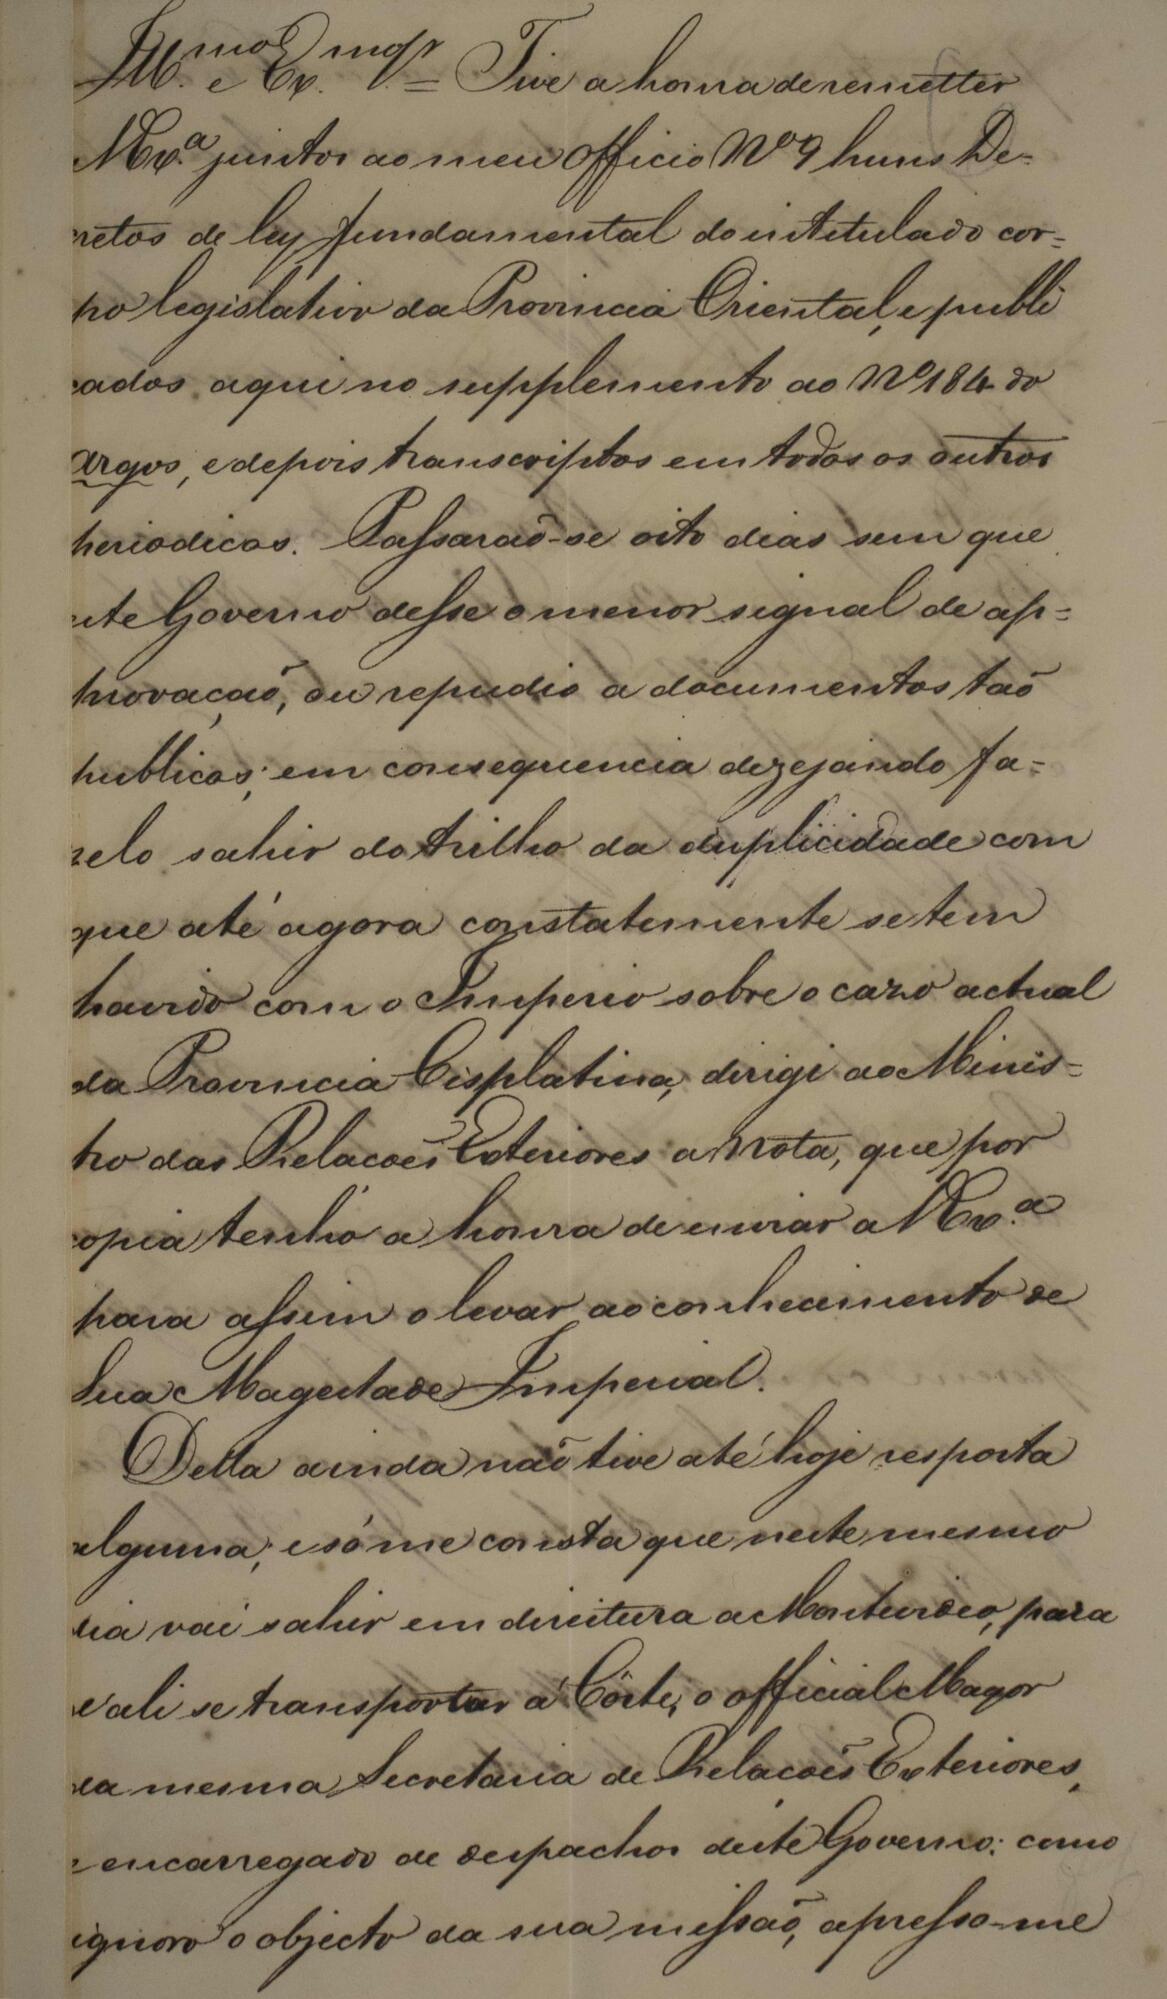 Ill.mo e Ex.mo Sr = Tive a honra de remetter
V Ex.a juntos ao meu officio Nº 9 huns De-
cretos de ley fundamental do intitulado cor-
po legislativo da Provincia Oriental, e publi
cados aqui no supplemento ao Nº 184 do
Argos, e depois transcriptos em todos os outros
periodicos. Passaraõ-se oito dias sem que
este Governo desse o menor signal de ap-
provaçaõ, ou repudio a documentos taõ
publicos; em consequencia dezejando fa-
zelo sahir do trilho da duplicidade com
que até agora constatemente se tem
havido com o Imperio sobre o cazo actual
da Provincia Cisplatina, dirigi ao Minis-
tro das Relacoẽs Exteriores a Nota, que por
copia tenho a honra de enviar a V Ex.a
para assim o levar ao conhecimento de
Sua Magestade Imperial.
Della ainda naõ tive até hoje resposta
alguma; e só me consta que neste mesmo
dia vai sahir em direitura a Montevideo, para
d'ali se transportar á Côrte, o official Mayor
da mesma Secretaria de Relacoẽs Exteriores,
e encarregado de despachos deste Governo: como
ignoro o objecto da sua missaõ, apresso-me